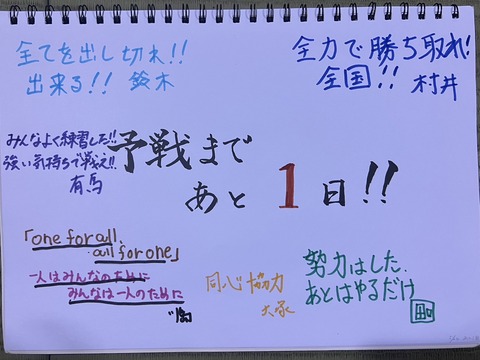 全てを出し切れ!!
出来る!! 鈴木
全力で勝ち取れ!
全国!! 村井
みんなよく練習した!!
強い気持ちで戦え!!
有馬
予戦まで
あと1日!!
「one for all,
all for one」
一人はみんなのために
みんなは一人のために
同心協力
大塚
努力はした.
あとはやるだけ